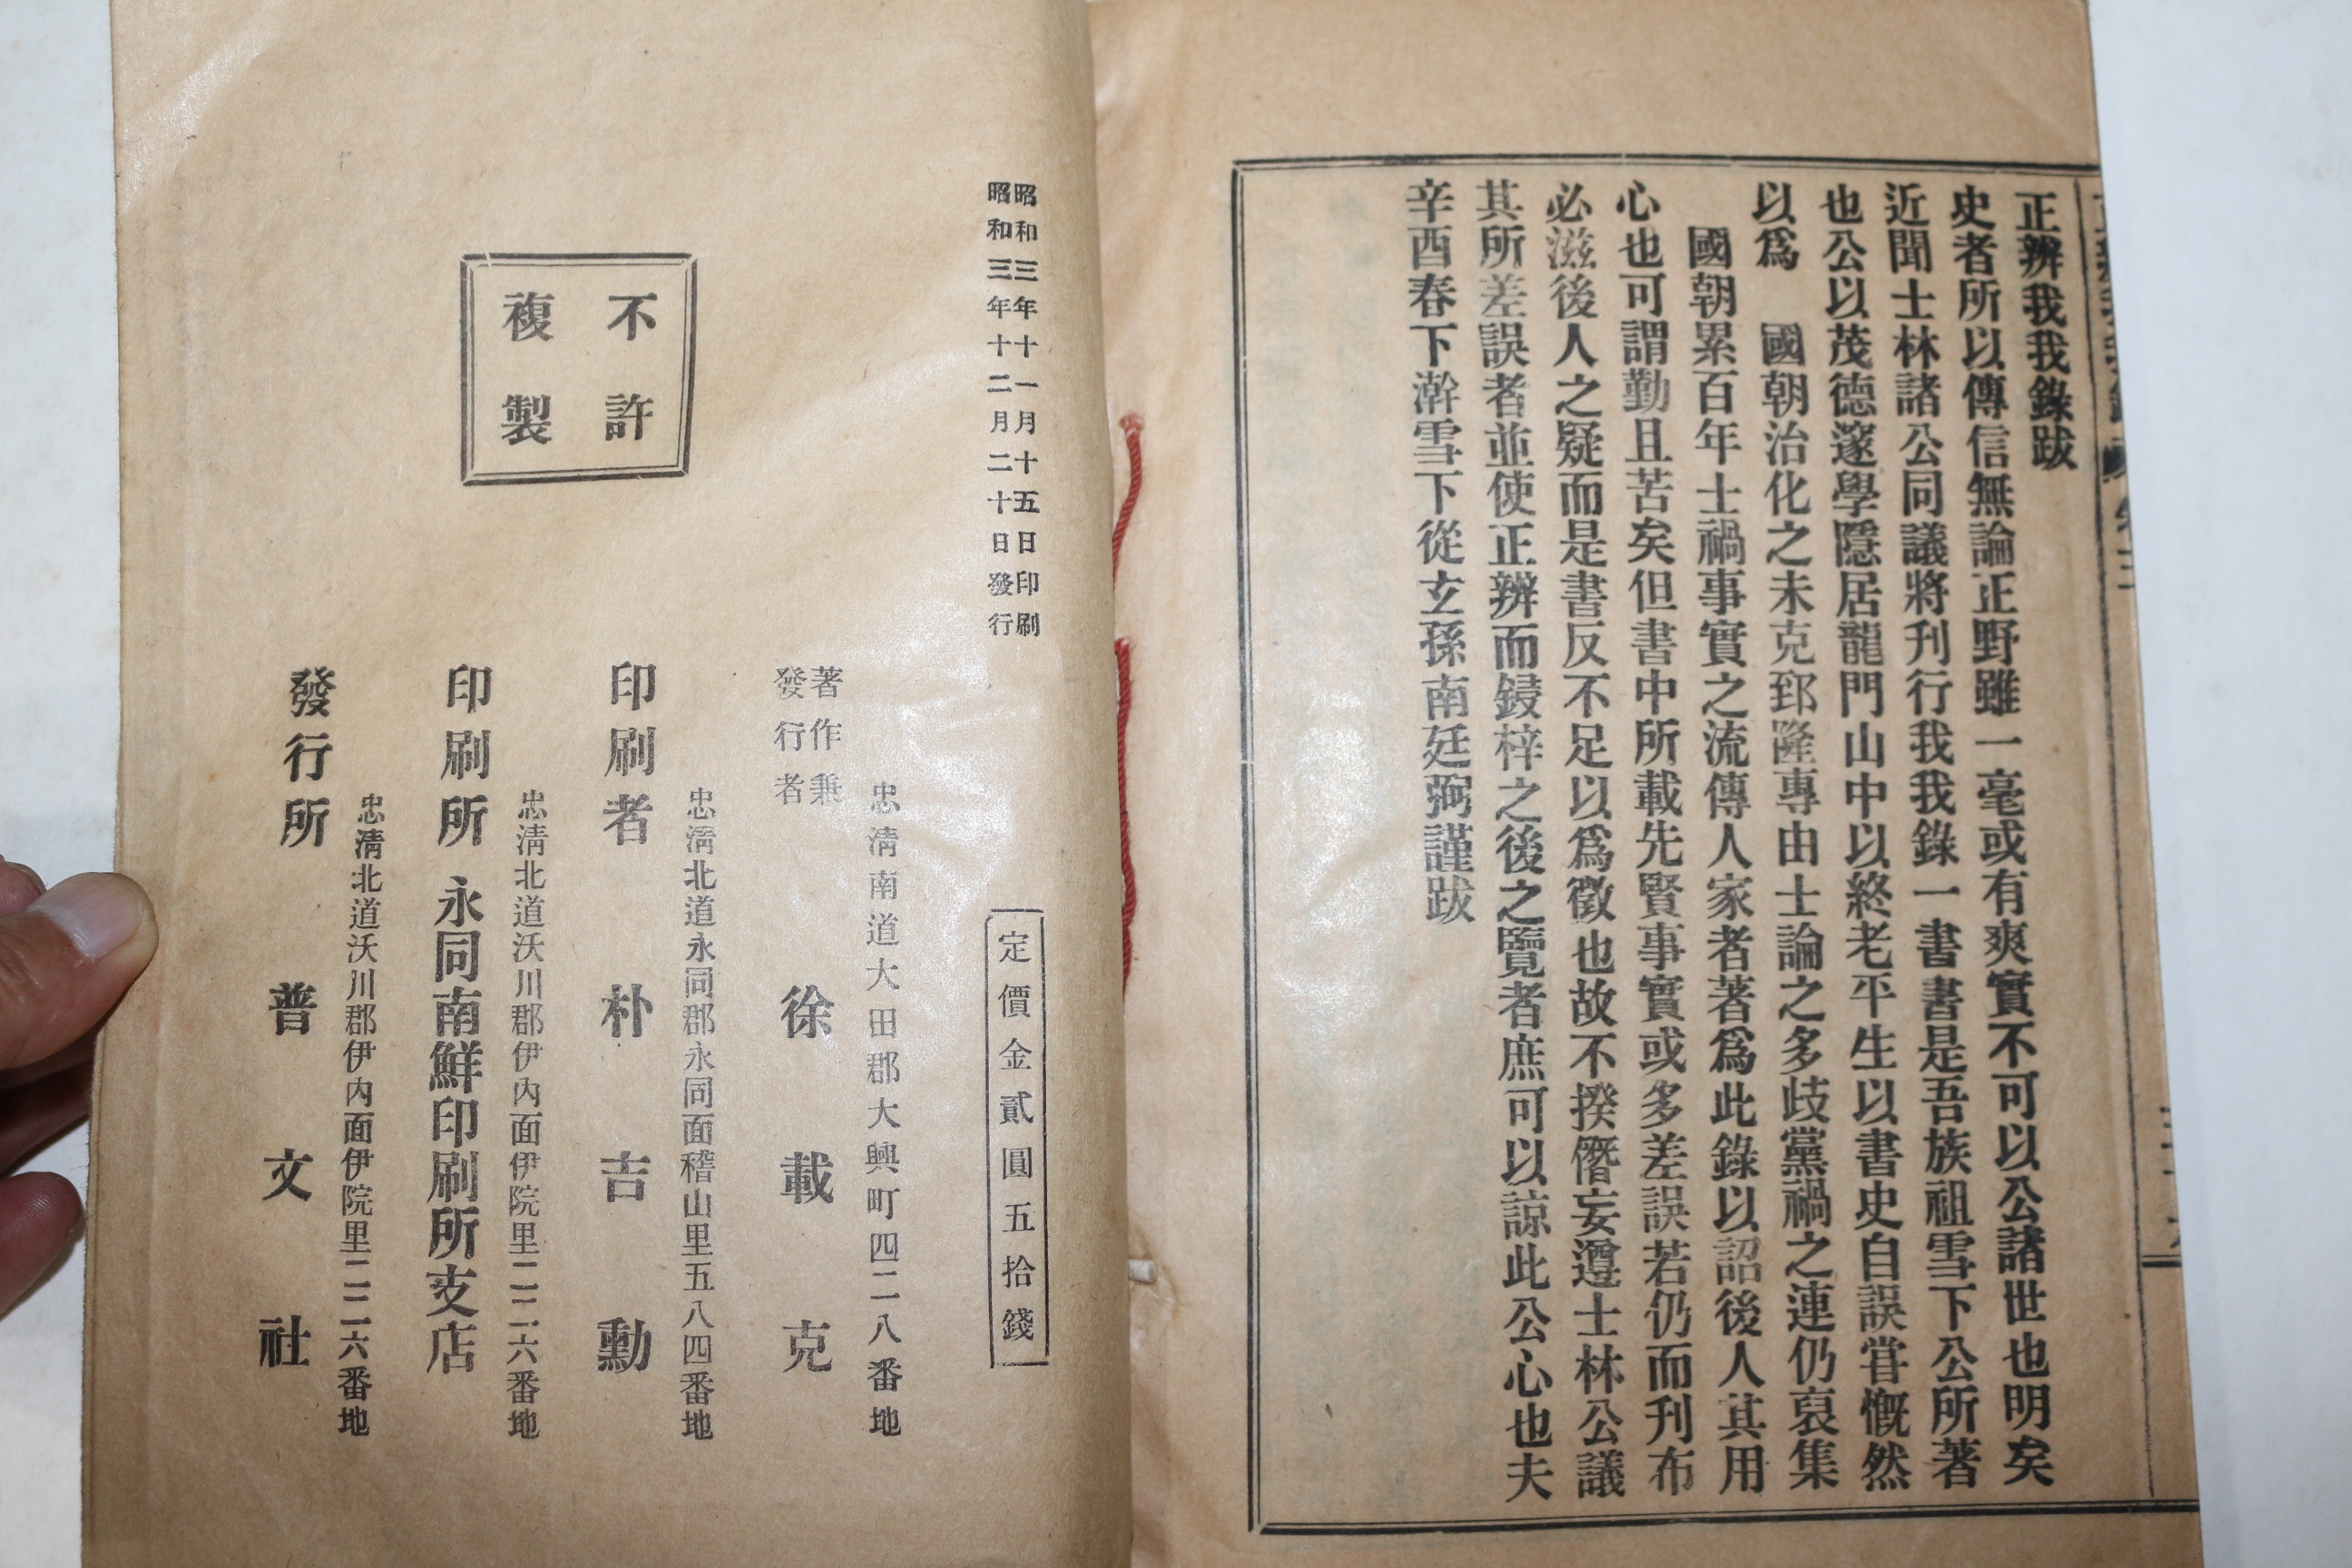 正辨我我錄跋
史者所以傳信無論正野雖一毫或有爽實不可以公諸世也明矣
近聞士林諸公同議將刊行我我錄一書書是吾族祖雪下公所著
也公以茂德邃學隱居龍門山中以終老平生以書史自誤甞慨然
以爲 國朝治化之未克郅隆專由士論之多歧黨禍之連仍裒集
國朝累百年士禍事實之流傳人家者著爲此錄以詔後人其用
心也可謂勤且苦矣但書中所載先賢事實或多差誤若仍而刊布
必滋後人之疑而是書反不足以爲徵也故不揆僭妄遵士林公議
其所差誤者並使正辨而鋟梓之後之覽者庶可以諒此公心也夫
辛酉春下澣雪下從玄孫南廷弼謹跋
昭和三年十一月十五日印刷
昭和三年十二月二十日發行
定價金貳圓五拾錢
忠淸南道大田郡大興町四二八番地
著作兼
發行者
徐載克
忠淸北道永同郡永同面稽山里五八四番地
印刷者 朴吉勳
忠淸北道沃川郡伊內面伊院里二二六番地
印刷所 永同南鮮印刷所支店
忠淸北道沃川郡伊內面伊院里二二六番地
發行所 普文社
不許
複製